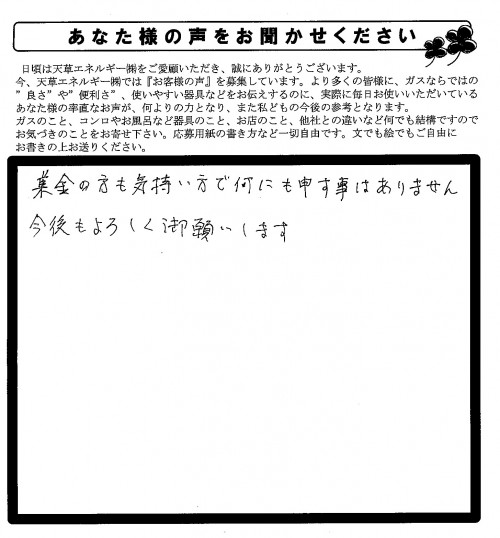 あなた様の声をお聞かせください
日頃は天草エネルギー㈱をご愛顧いただき、誠にありがとうございます。
今、天草エネルギー㈱では『お客様の声』を募集しています。より多くの皆様に、ガスならではの
”良さ”や”便利さ”、使いやすい器具などをお伝えするのに、実際に毎日お使いいただいている
あなた様の率直なお声が、何よりの力となり、また私どもの今後の参考となります。
ガスのこと、コンロやお風呂など器具のこと、お店のこと、他社との違いなど何でも結構ですので
お気づきのことをお寄せ下さい。応募用紙の書き方など一切自由です。文でも絵でもご自由に
お書きの上お送りください。
集金の方も気持い方で何にも申す事はありません
今後もよろしく御願いします